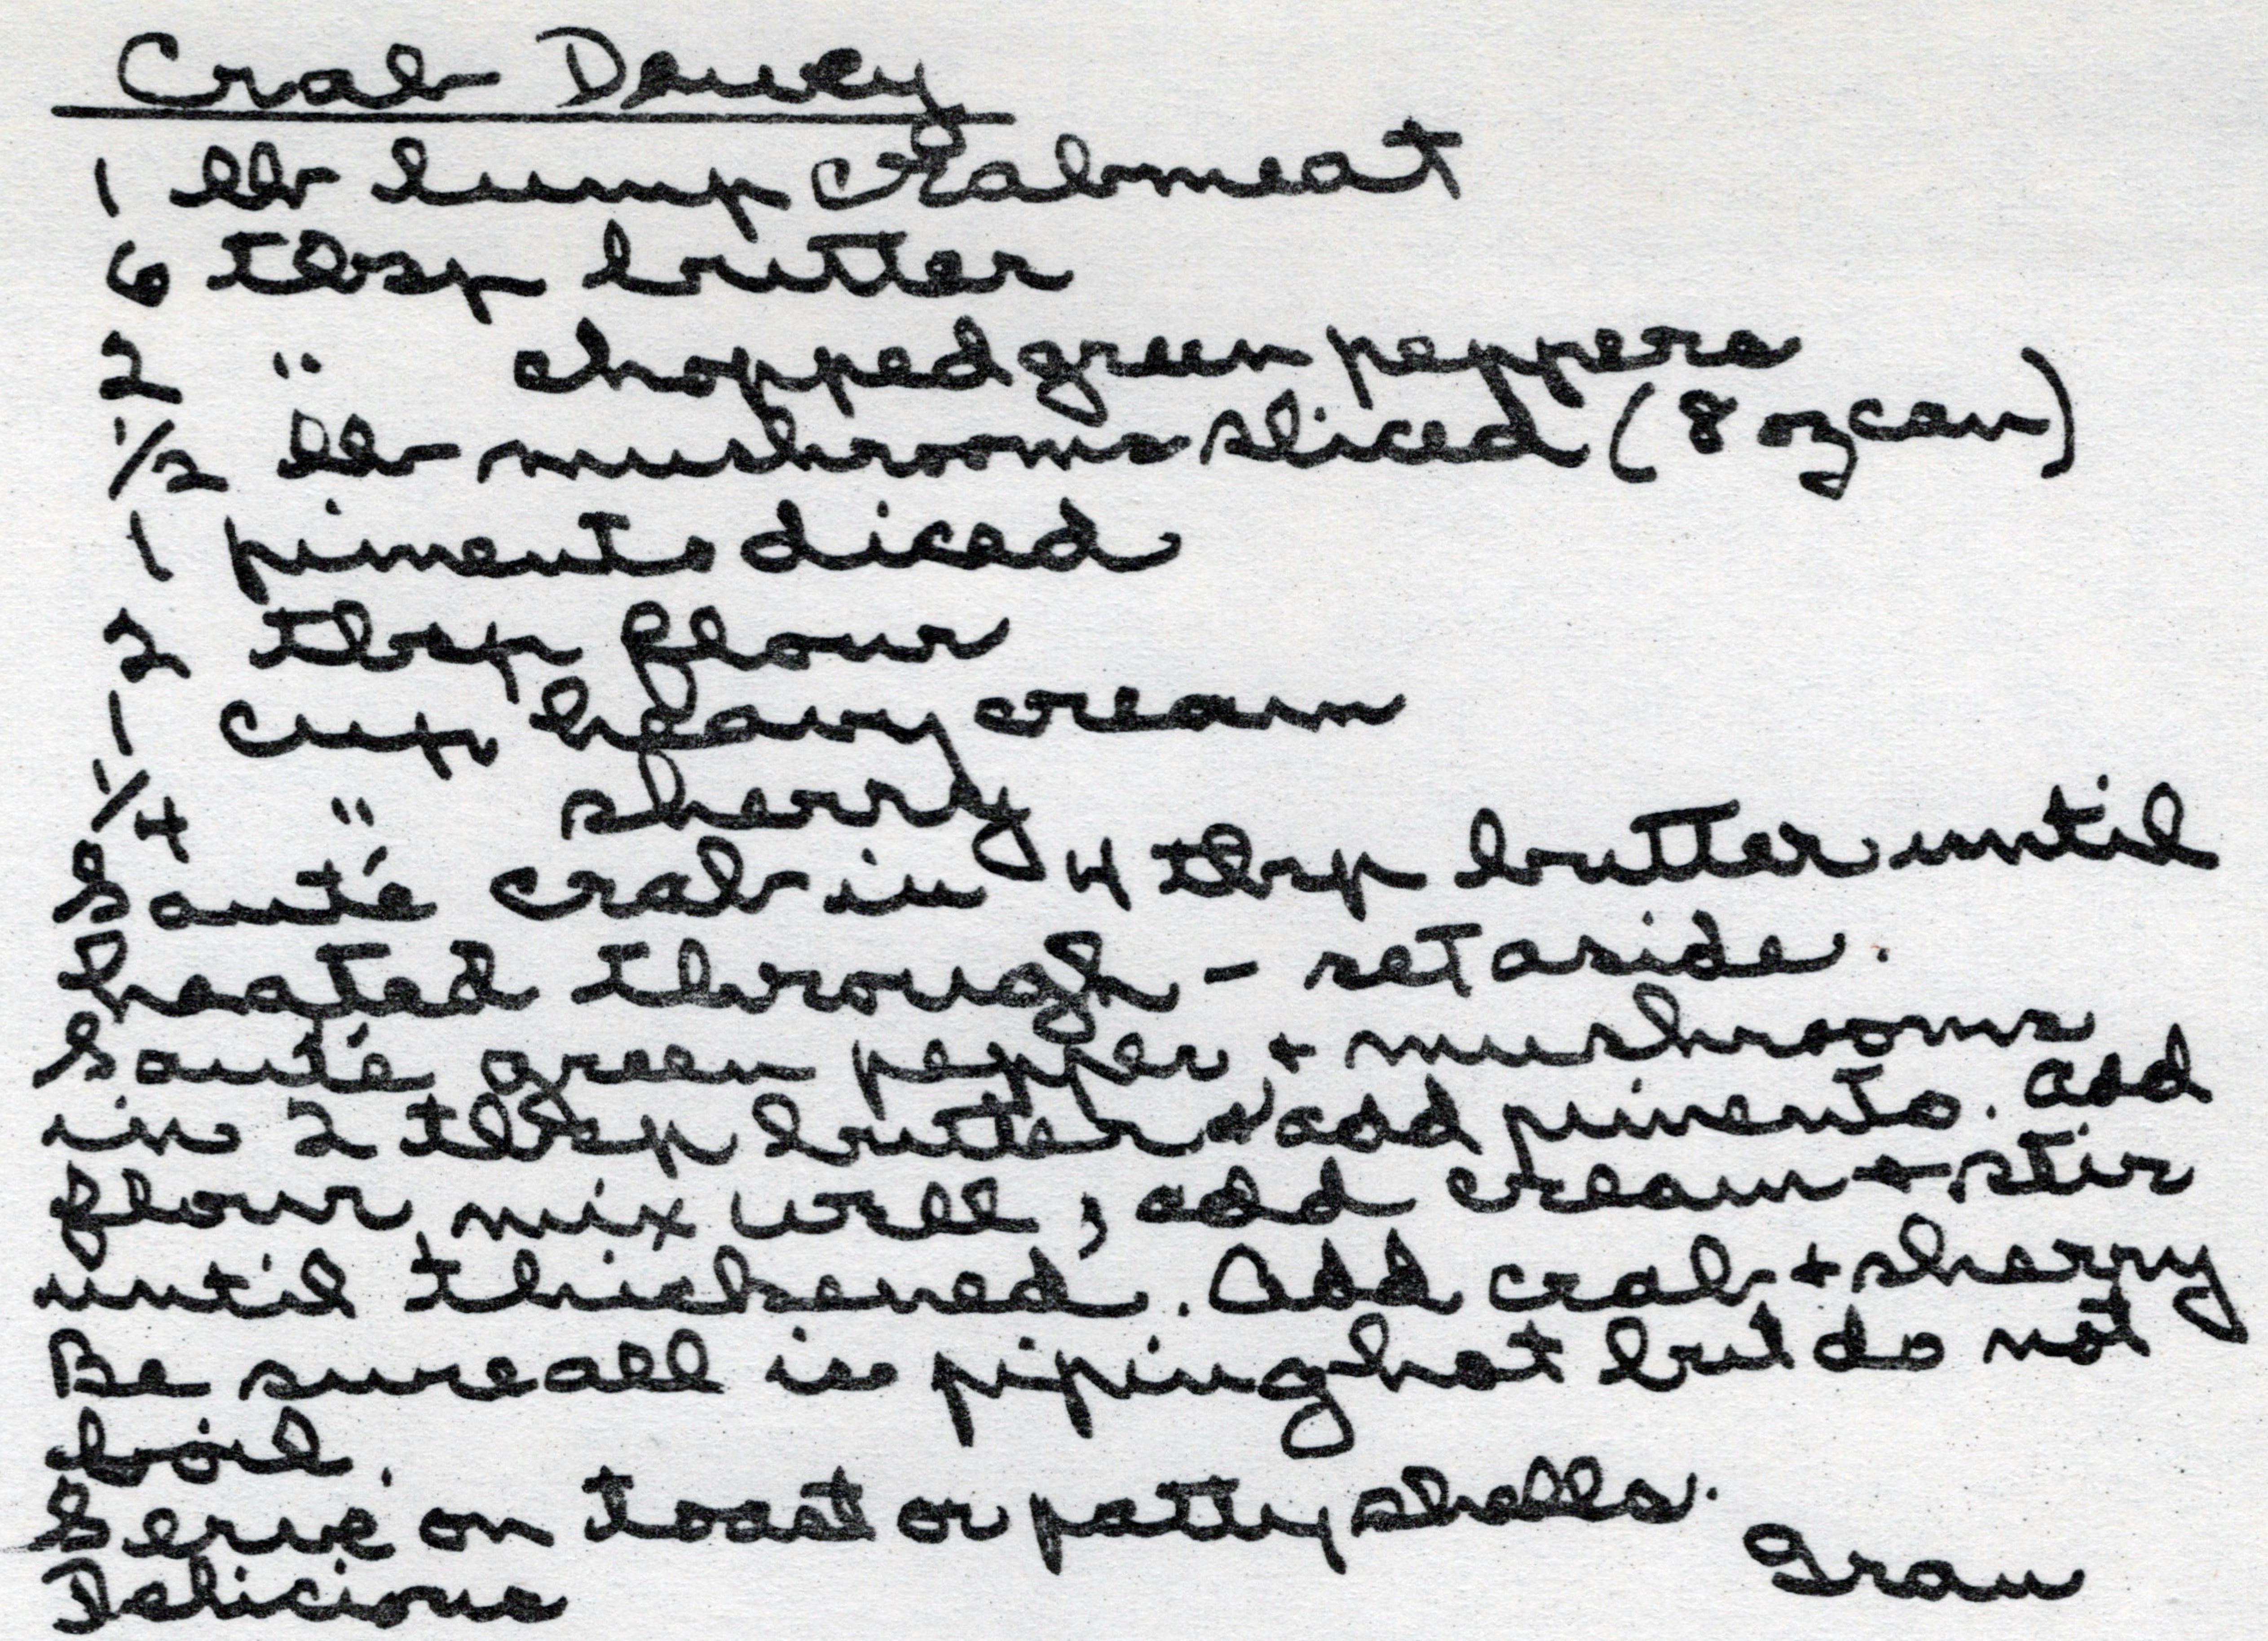 Crab Dewey
1 lb lump crabmeat
6 tbsp butter
2 " chopped green peppers
1/2 lb mushrooms sliced (8 oz can)
1 pimento diced
2 tbsp flour
1 cup heavy cream
1/4 " sherry
Sauté crab in 4 tbsp butter until
heated through - set aside.
Sauté green pepper + mushrooms
in 2 tbsp butter & add pimento. Add
flour, mix well, add cream + stir
until thickened. Add crab + sherry
Be sure all is piping hot but do not
boil.
Serve on toast or patty shells.
Gran
Delicious